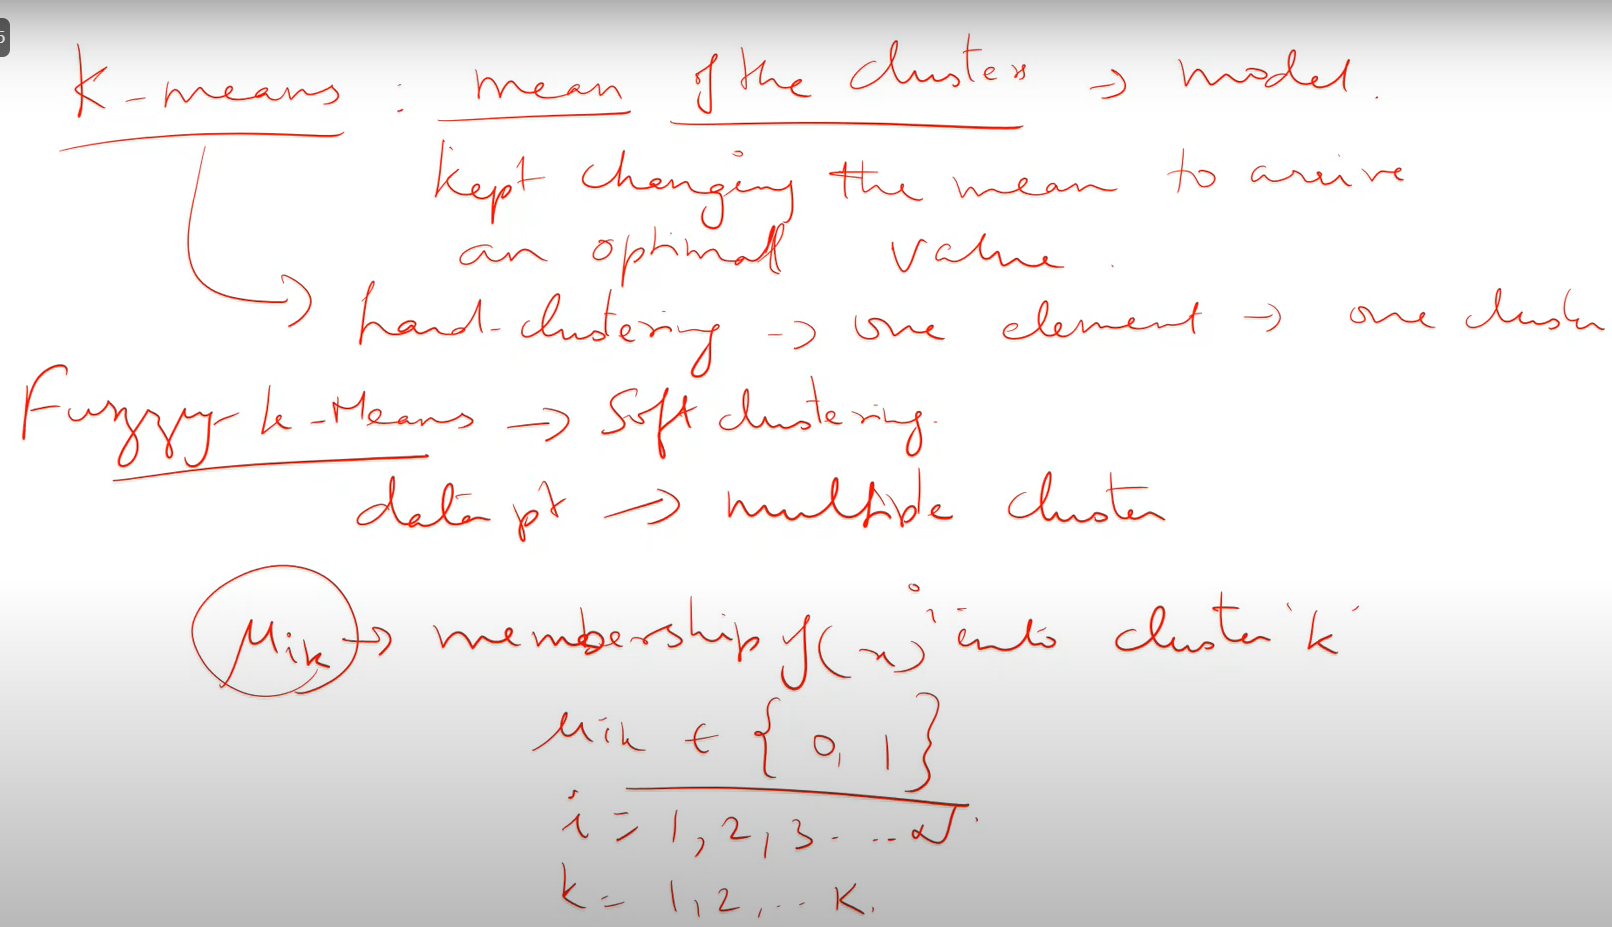 5
K-means : mean of the clusters → model.
kept changing the mean to arrive
an optimal value.
hard-clustering → one element → one cluster
Fuzzy k-Means → Soft clustering.
data pt → multiple cluster
μik → membership of (x) i into cluster 'k'
μik ∈ { 0, 1 }
i = 1, 2, 3 - ... N.
k = 1, 2, ... K.